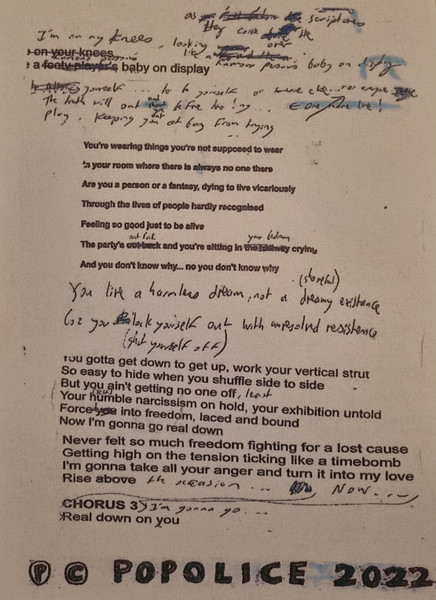 as the scriptures
they come
I'm on my knees, looking over
on your knees like a
a footy player's baby on display famous persons baby on display
yourself ... to b yourself or
The truth will out to free the
play. Keeping you at bay from trying
You're wearing things you're not supposed to wear
In your room where there is always no one there
Are you a person or a fantasy, dying to live vicariously
Through the lives of people hardly recognised
Feeling so good just to be alive
out front your bedroom
The party's out back and you're sitting in the hallway crying,
And you don't know why... no you don't know why
(shameful)
You live a harmless dream, not a dreamy existence
Coz you lock yourself out with unresolved resistence
(shut yourself off)
You gotta get down to get up, work your vertical strut
So easy to hide when you shuffle side to side
But you ain't getting no one off, least
Your humble narcissism on hold, your exhibition untold
Force you into freedom, laced and bound
Now I'm gonna go real down
Never felt so much freedom fighting for a lost cause
Getting high on the tension ticking like a timebomb
I'm gonna take all your anger and turn it into my love
Rise above the occasion... Now...
CHORUS 3) I'm gonna go...
Real down on you
Ⓟ © POPOLICE 2022